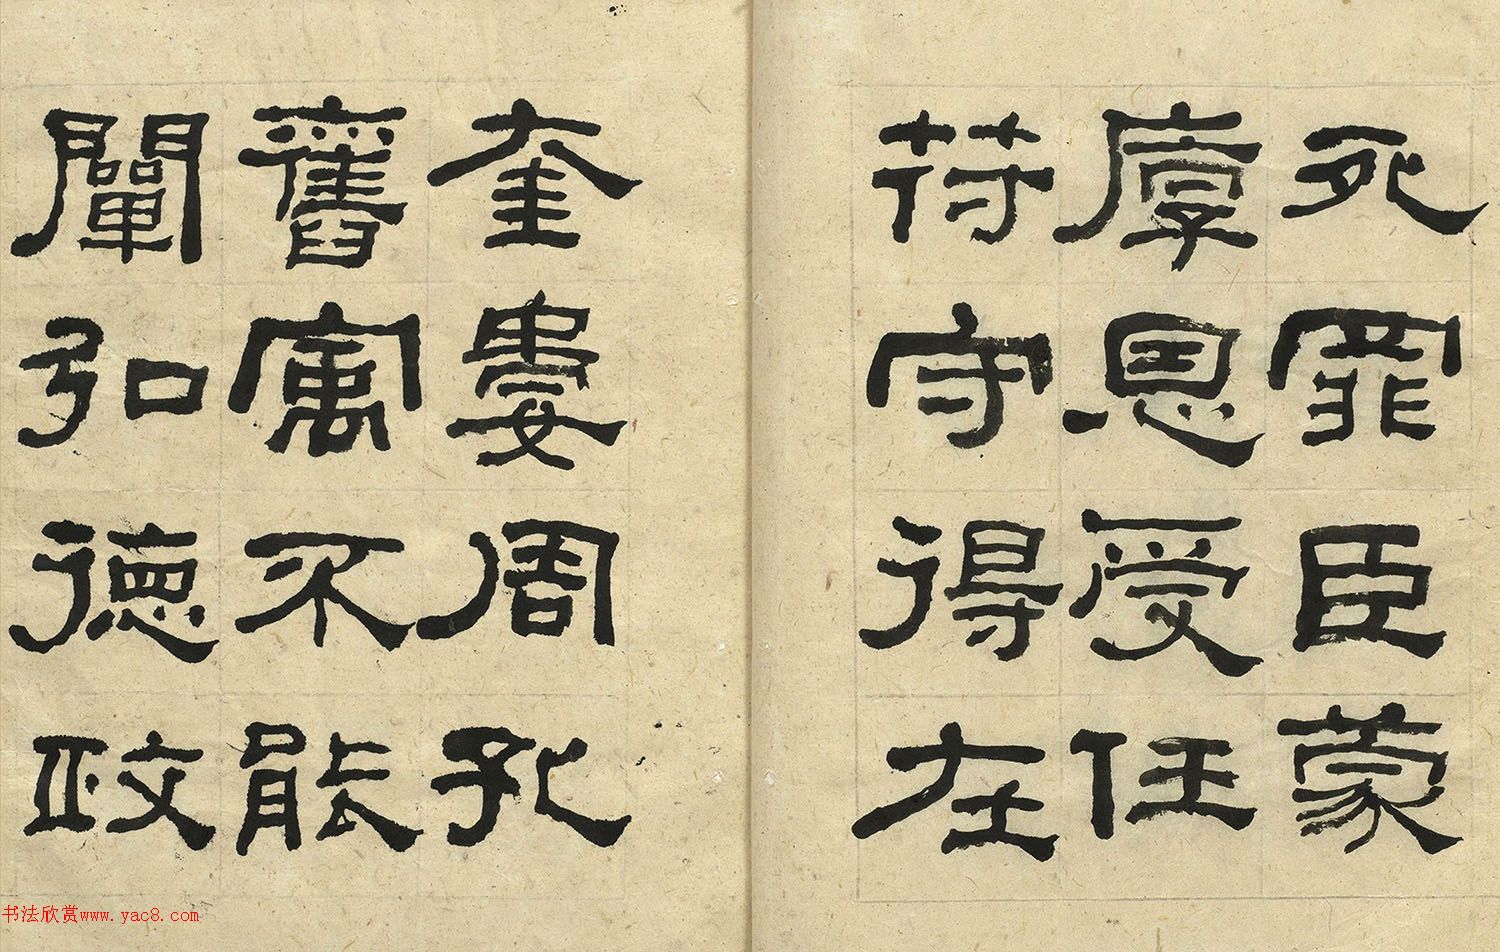 死罪臣蒙
厚恩受任
符守得在
奎婁周孔
舊寓不能
闡弘德政
书法欣赏www.yac8.com